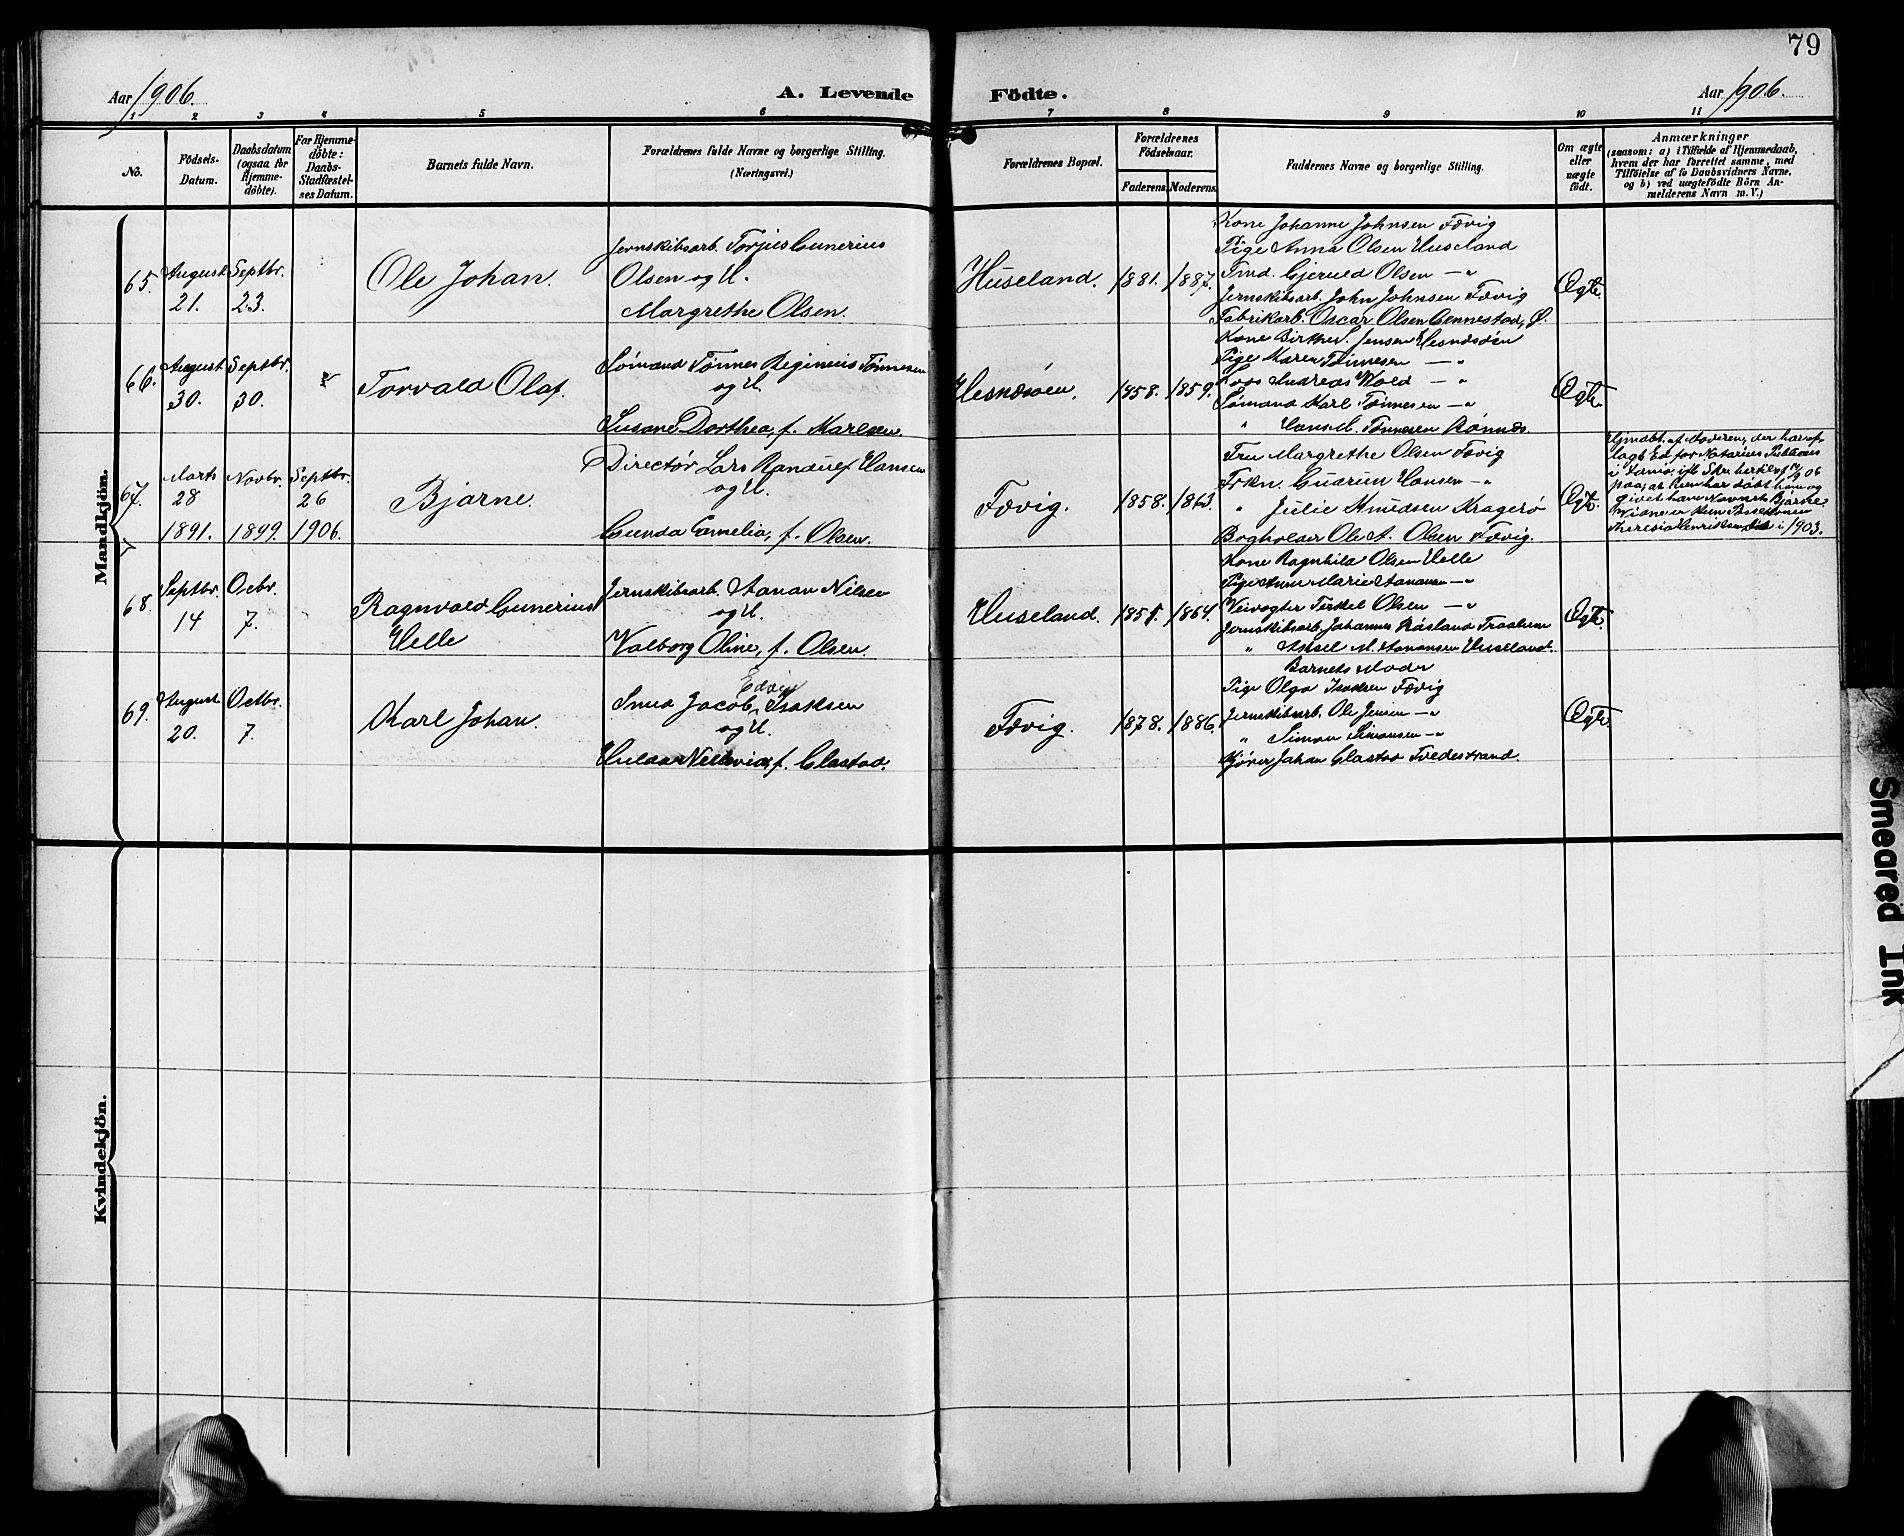 79
Aar 1906.
A. Levende Födte.
Aar 1906.
1 2 3 4 5 6 7 8 9 10 11
No.
Födsels-
Datum.
Daabsdatum
(ogsaa for
Hjemme-
döbte).
For Hjemme-
döbte:
Daabs-
Stadfæstel-
ses Datum.
Barnets fulde Navn.
Forældrenes fulde Navne og borgerlige Stilling.
(Næringsvei.)
Forældrenes Bopæl.
Forældrenes
Födselsaar.
Faderens.
Moderens.
Faddernes Navne og borgerlige Stilling.
Om ægte
eller
uægte
födt.
Anmærkninger
(saasom: a) i Tilfælde af Hjemmedaab,
hvem der har forrettet samme, med
Tilföielse af to Daabsvidners Navne,
og b) ved uægtefödte Börn An-
melderens Navn m. V.)
Mandkjön.
65.
August
21.
Septbr.
23.
Ole Johan.
Jernskibsarb. Torjus Gunerius
Olsen og H.
Margrethe Olsen.
Huseland.
1881.
1887.
Kone Johanne Johnsen Fævig
Pige Anna Olsen Huseland
Tmd. Gjerued Olsen — "
Jernskibsarb. John Johnsen Fævig
Fabrikarb. Oscar Olsen Gennestad, Ø.
Ægte.
66.
August
30.
Septbr.
30.
Torvald Olaf.
Sømand Tønnes Reginius Tønnesen
og H.
Susane Dorthea, f. Karlsen.
Hesnæsøen.
1858.
1859.
Kone Birthe J. Jensen Hesnæsöen
Pige Maren Tønnesen — "
Lods Andreas Wold — "
Sømand Karl Tønnesen — "
" Hans M. Tønnesen Rönnes.
Ægte.
67.
Marts
28
1891.
Novbr.
1899.
Septbr.
26
1906.
Bjarne.
Directør Lars Randulf Hansen
og H.
Gunda Cornelia, f. Olsen.
Fævig.
1858.
1863.
Fru Margrethe Olsen Fævig
Frkn. Gudrun Hansen — "
" Julie Knudsen Kragerö
Bogholder Ole A. Olsen Fævig.
Ægte.
Hjmdbt. af Moderen, der har af-
lagt Ed for Notarius Publicus
paa, at hun har døbt ham og
givet ham Navnet Bjarne.
i 1903.
68.
Septbr.
14
Octbr.
7.
Ragnvald Gunerius
Helle
Jernskibsarb. Aanan Nilsen
og H.
Valborg Oline, f. Olsen.
Huseland.
1864.
Kone Ragnhild Olsen Helle
Pige Anne Marie Aanansen — "
Veivogter Terkel Olsen — "
Jernskibsarb. Johannes
" Aksel M. Aanansen Huseland.
Ægte.
69.
August
20.
Octbr.
7.
Karl Johan.
Smed Jacob Edvin Isaksen
og H.
f. Glastad.
Fævig.
1878.
1886.
Barnets Moder
Pige Olga Isaksen Fævig
Jernskibsarb. Ole Jensen — "
" Simon Simonsen — "
Johan Glastad Tvedestrand.
Ægte.
Kvindekjön.
Smeared Ink